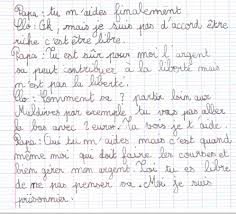 Papa : tu m'aides finalement
Clo : Ok, mais je suis pas d'accord être
riche c'est être libre.
Papa : Tu est sûr pour moi l'argent
sa peut contribuer à la liberté mais
n'est pas la liberté.
Clo : Comment sa ? partir loin aux
Maldives par exemple tu vas pas aller
là bas avec 2 euros. Tu vois je t'aide.
Papa : Oui tu m'aides mais c'est quand
même moi qui doit faire les courses et
bien gérer mon argent. Toi tu es libre
de ne pas penser sa. Moi je suis
prisonnier.